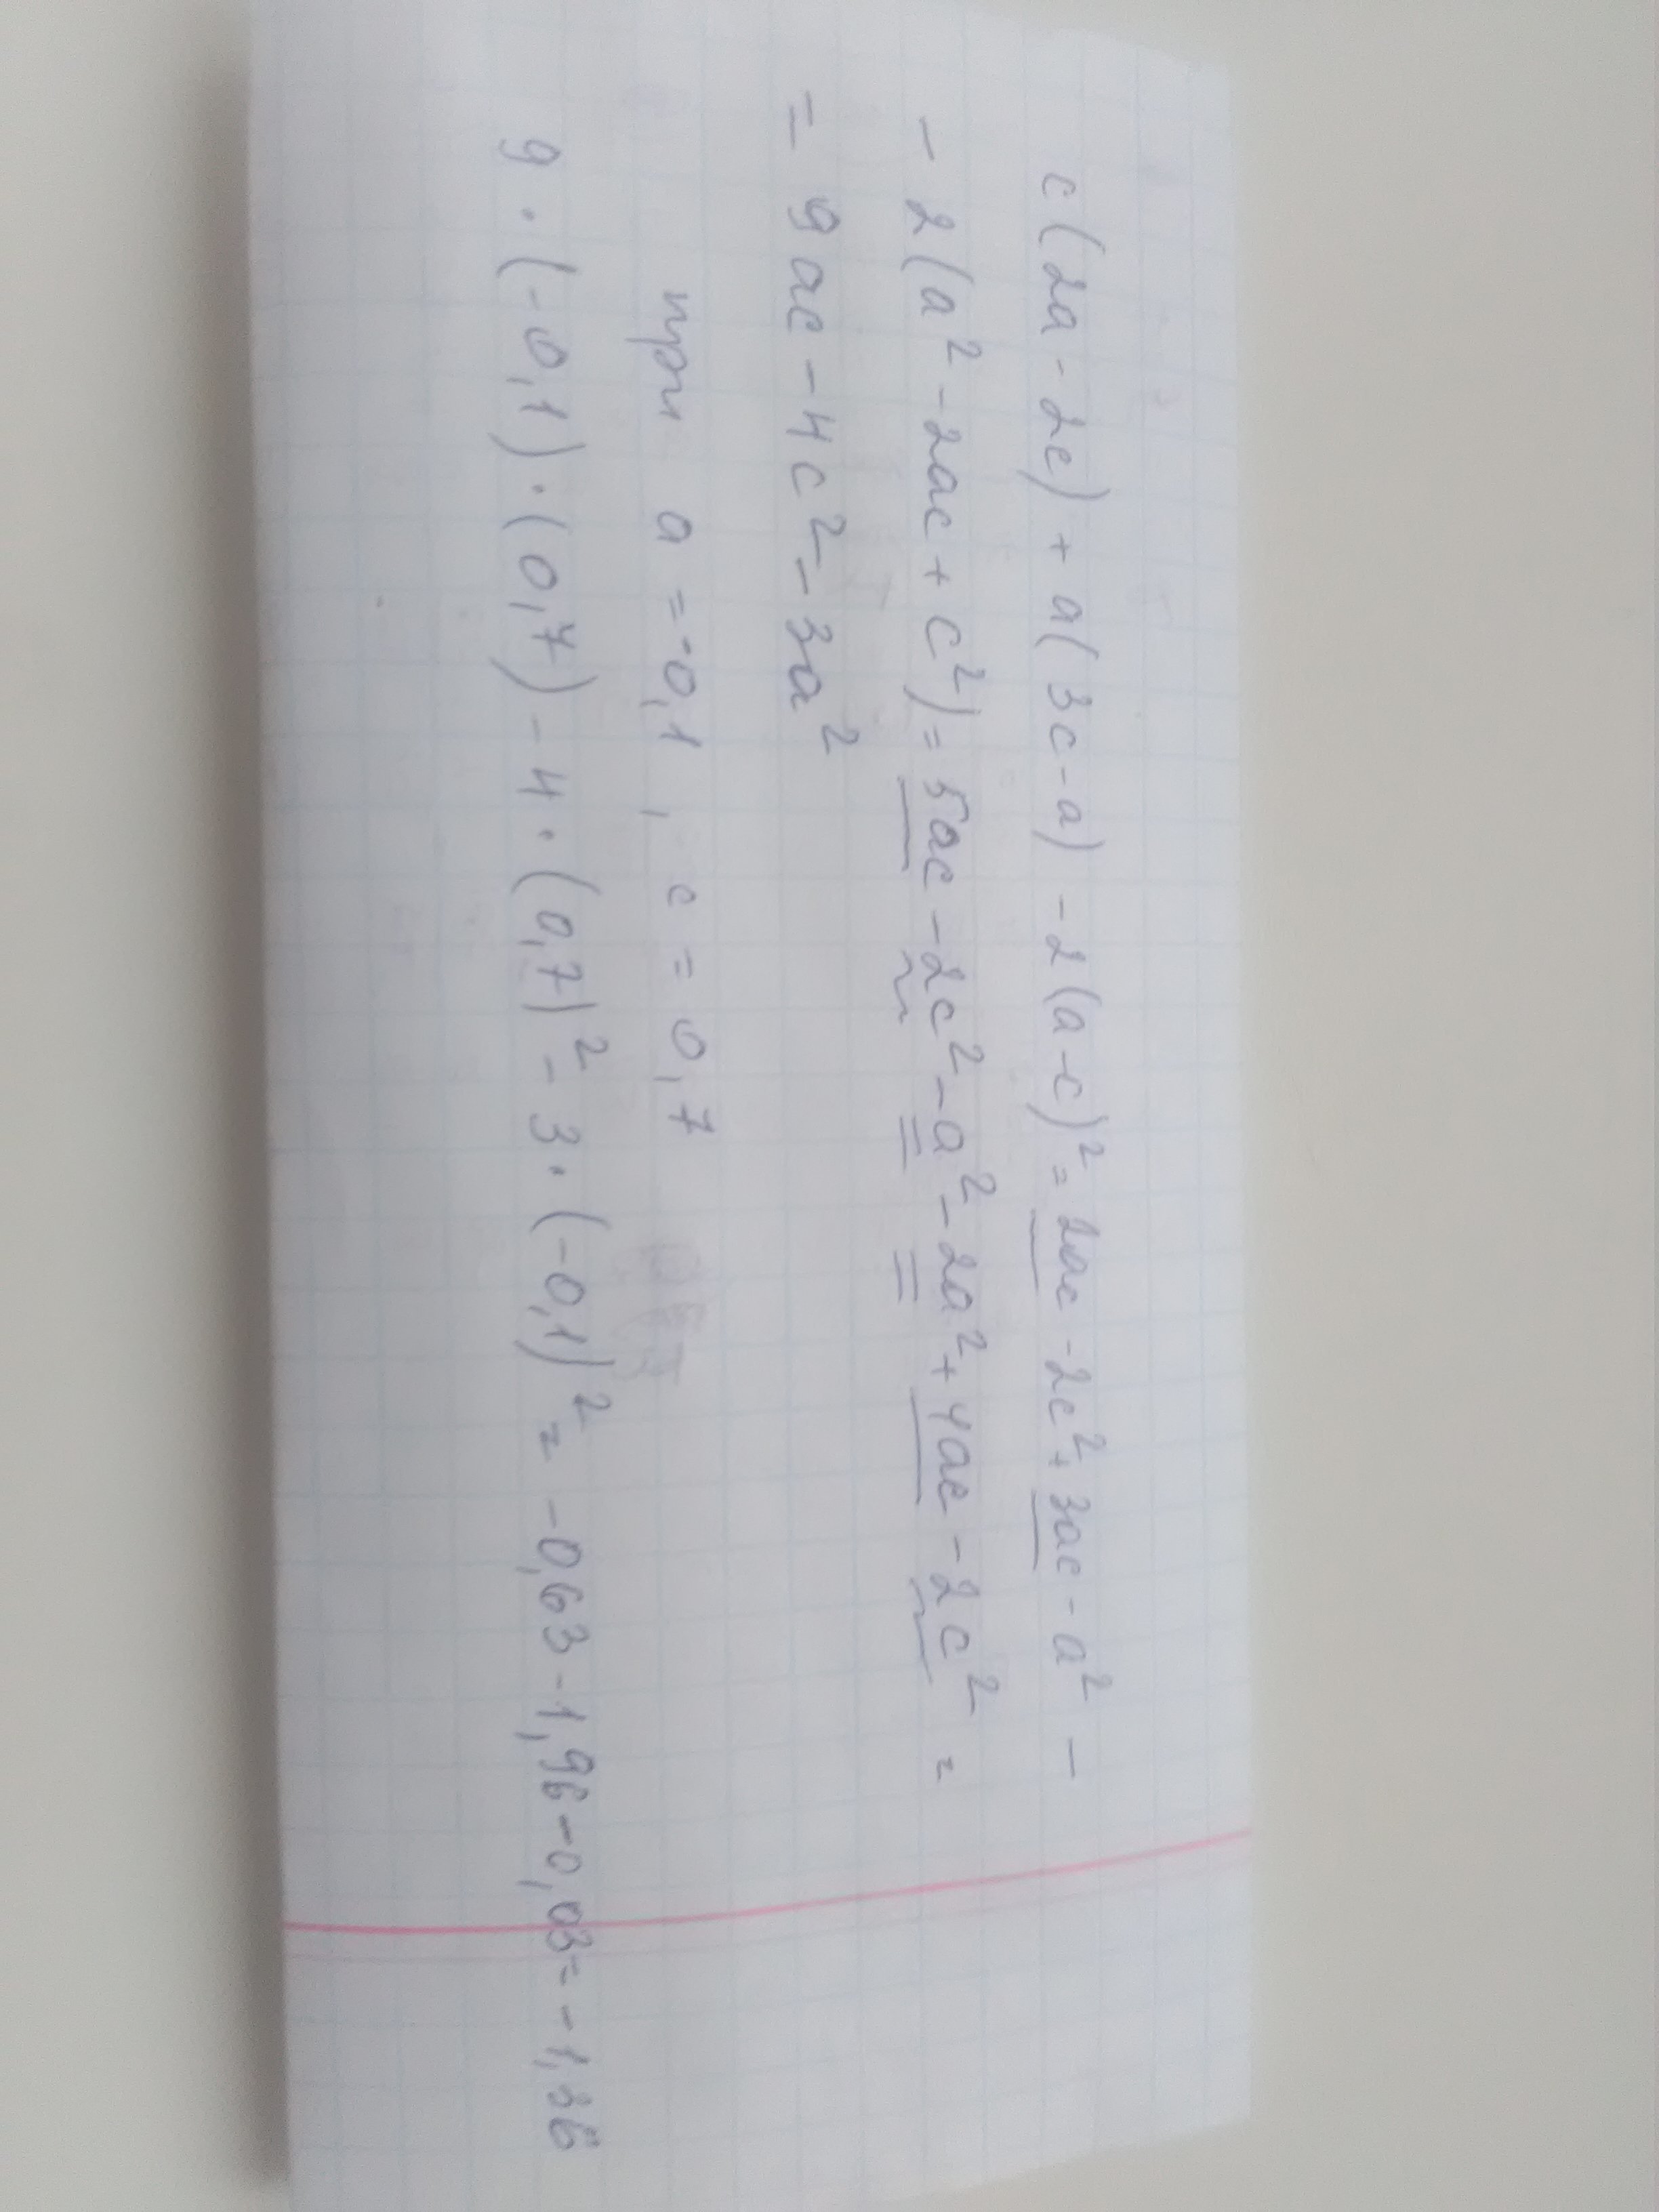 c(2a-2c)+a(3c-a)-2(a-c)²=2ac-2c²+3ac-a²-
-2(a²-2ac+c²)=5ac-2c²-a²-2a²+4ac-2c²=
=9ac-4c²-3a²
при a=-0,1, c=0,7
9·(-0,1)·(0,7)-4·(0,7)²-3·(-0,1)²=-0,63-1,96-0,03=-1,36